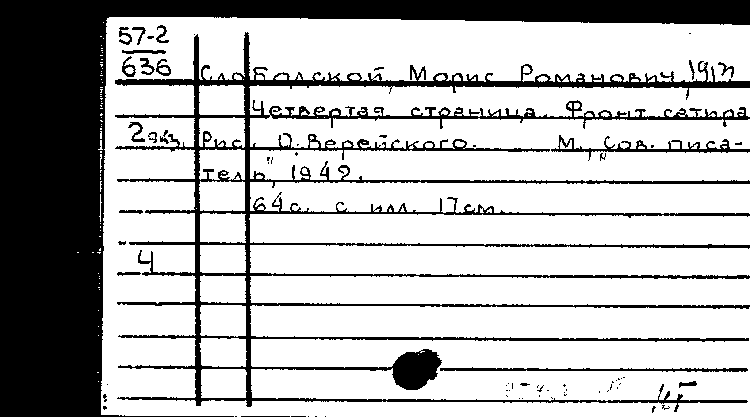 57-2
636
Слободской, Морис Романович, 1913
Четвертая страница. Фронт. сатира
2 экз. Рис. О. Верейского. М., „Сов. писа-
тель", 1942.
64 с. с илл. 17 см.
4